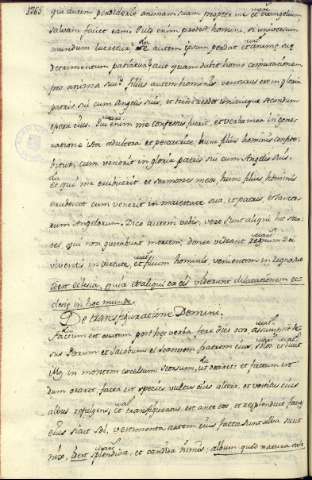 qui autem perdiderit animam suam propter me et Euangelium
saluam faciet eam. Quid enim prodest homini, si uniuersum
mundum lucretur autem ipsum perdat et
detrimentum patiatur? aut quam dabit homo comutationem
pro anima sua? filius autem hominis venturus est in gloria
patris sui cum Angelis suis, et tunc reddet unicuique secundum
opera eius. qui enim me confessus fuerit, et verba mea in gene
ratione ista adultera et peccatrice, hunc filius hominis
cum venerit in gloria patris sui cum Angelis suis.
et qui me erubuerit et sermones meos hunc filius hominis
erubescet cum venerit in maiestate sua, et patris et sancto
rum Angelorum. Dico autem vobis, vere sunt aliqui hic stan
tes, qui non gustabunt mortem, donec videant regnum Dei
in virtute, et filium hominis venientem in regno
quia aliqui ex eis
in hoc mundo
De transfiguratione Domini.
Factum est autem post hec verba fere dies octo assumpsit Ie
sus Petrum et Iacobum et Ioannem fratrem eius et duxit
illos in montem excelsum seorsum, ut oraret et factum est
dum oraret facta est species vultus eius altera, et vestitus eius
albus refulgens, et transfiguratus est ante eos et resplenduit facies
eius sicut sol, vestimenta autem eius facta sunt alba sicut
nix, splendida, et candida nimis, album quid natura